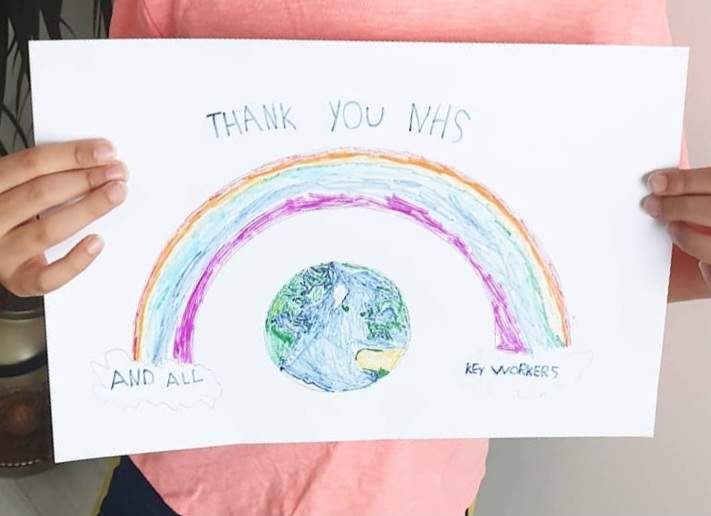 THANK YOU NHS
AND ALL
KEY WORKERS